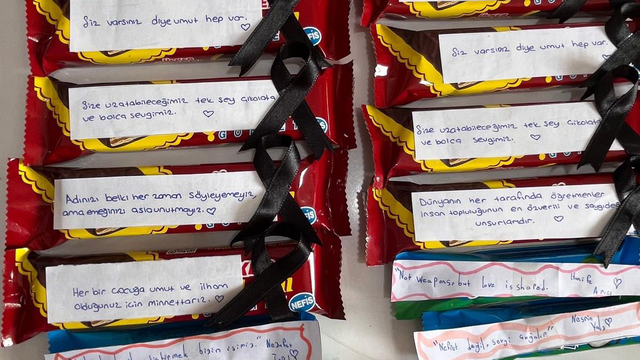 Siz varsınız diye umut hep var. ♡
Size uzatabileceğimiz tek şey çikolata
ve bolca sevgimiz. ♡
Adınızı belki her zaman söyleyemeyiz,
ama emeğinizi asla unutmayız. ♡
Her bir çocuğa umut ve ilham
olduğunuz için minnettarız. ♡
NEFİS
bizim işimiz."
Siz varsınız diye umut hep var.
Size uzatabileceğimiz tek şey çikolata
ve bolca sevgimiz. ♡
Dünyanın her tarafında öğretmenler
insan topluluğunun en özverili ve saygıdeğer
unsurlarıdır. ♡
"Not weapons, but love is shared.
"Nefret değil, sevgi